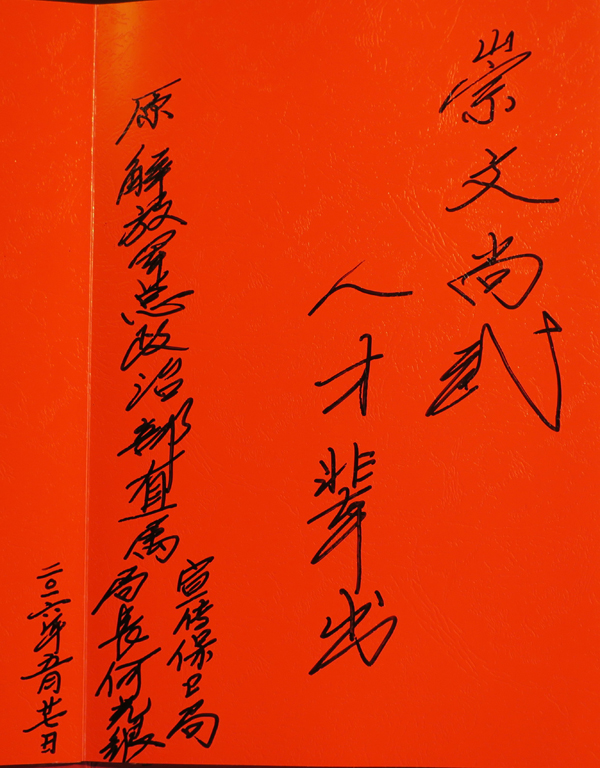 崇文尚武
人才辈出
宣传保卫局
原解放军总政治部直属局长何光
二〇一六年五月廿日